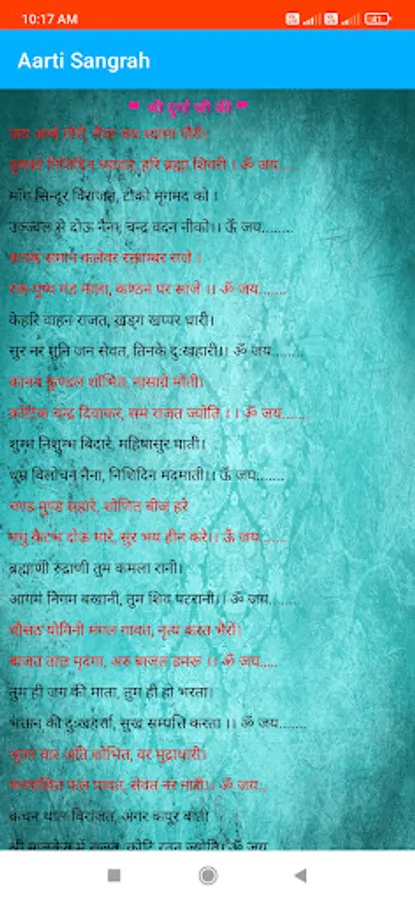 10:17 AM
41
Aarti Sangrah
❝ श्री दुर्गा जी की ❞
जय अम्बे गौरी, मैया जय श्यामा गौरी।
तुमको निशिदिन ध्यावत, हरि ब्रह्मा शिवरी । ॐ जय.....
माँग सिन्दूर विराजत, टीको मृगमद को ।
उज्ज्वल से दोऊ नैना, चन्द्र वदन नीको।। ऊँ जय........
कनक समान कलेवर रक्ताम्बर राजे ।
रक्त पुष्प गल माला, कण्ठन पर साजे ।। ॐ जय.......
केहरि वाहन राजत, खड्ग खप्पर धारी।
सुर नर मुनि जन सेवत, तिनके दुःखहारी।। ॐ जय........
कानन कुण्डल शोभित, नासाग्रे मोती।
कोटिक चन्द्र दिवाकर, सम राजत ज्योति । । ॐ जय.......
शुम्भ निशुम्भ बिदारे, महिषासुर घाती।
धूम्र विलोचन नैना, निशिदिन मदमाती।। ऊँ जय........
चण्ड मुण्ड संहारे, शोणित बीज हरे
मधु कैटभ दोऊ मारे, सुर भय हीन करे।। ऊँ जय.......
ब्रह्माणी रुद्राणी तुम कमला रानी।
आगम निगम बखानी, तुम शिव पटरानी।। ॐ जय........
चौसठ योगिनी मंगल गावत, नृत्य करत भैरों।
बाजत ताल मृदंगा, अरु बाजत डमरू ।। ॐ जय.....
तुम ही जग की माता, तुम ही हो भरता।
भक्तन की दुःखहर्ता, सुख सम्पत्ति करता ।। ॐ जय.......
भुजा चार अति शोभित, वर मुद्राधारी।
मनवांछित फल पावत, सेवत नर नारी।। ॐ जय..
कंचन थाल विराजत, अगर कपूर बाती
श्री मालकेतु में राजत, कोटि रतन ज्योति। ॐ जय